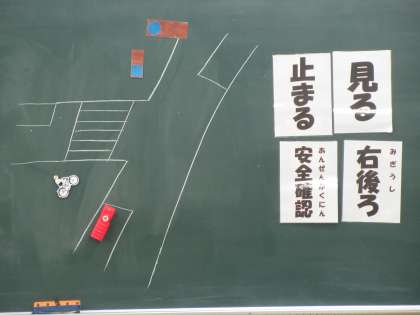 止まる
見る
あんぜんかくにん
安全確認
みぎうし
右後ろ